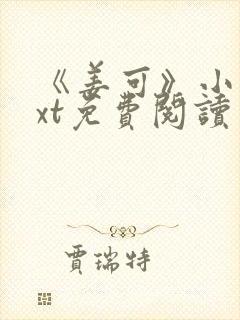 《姜可》小
xt免費閱讀
賈瑞特